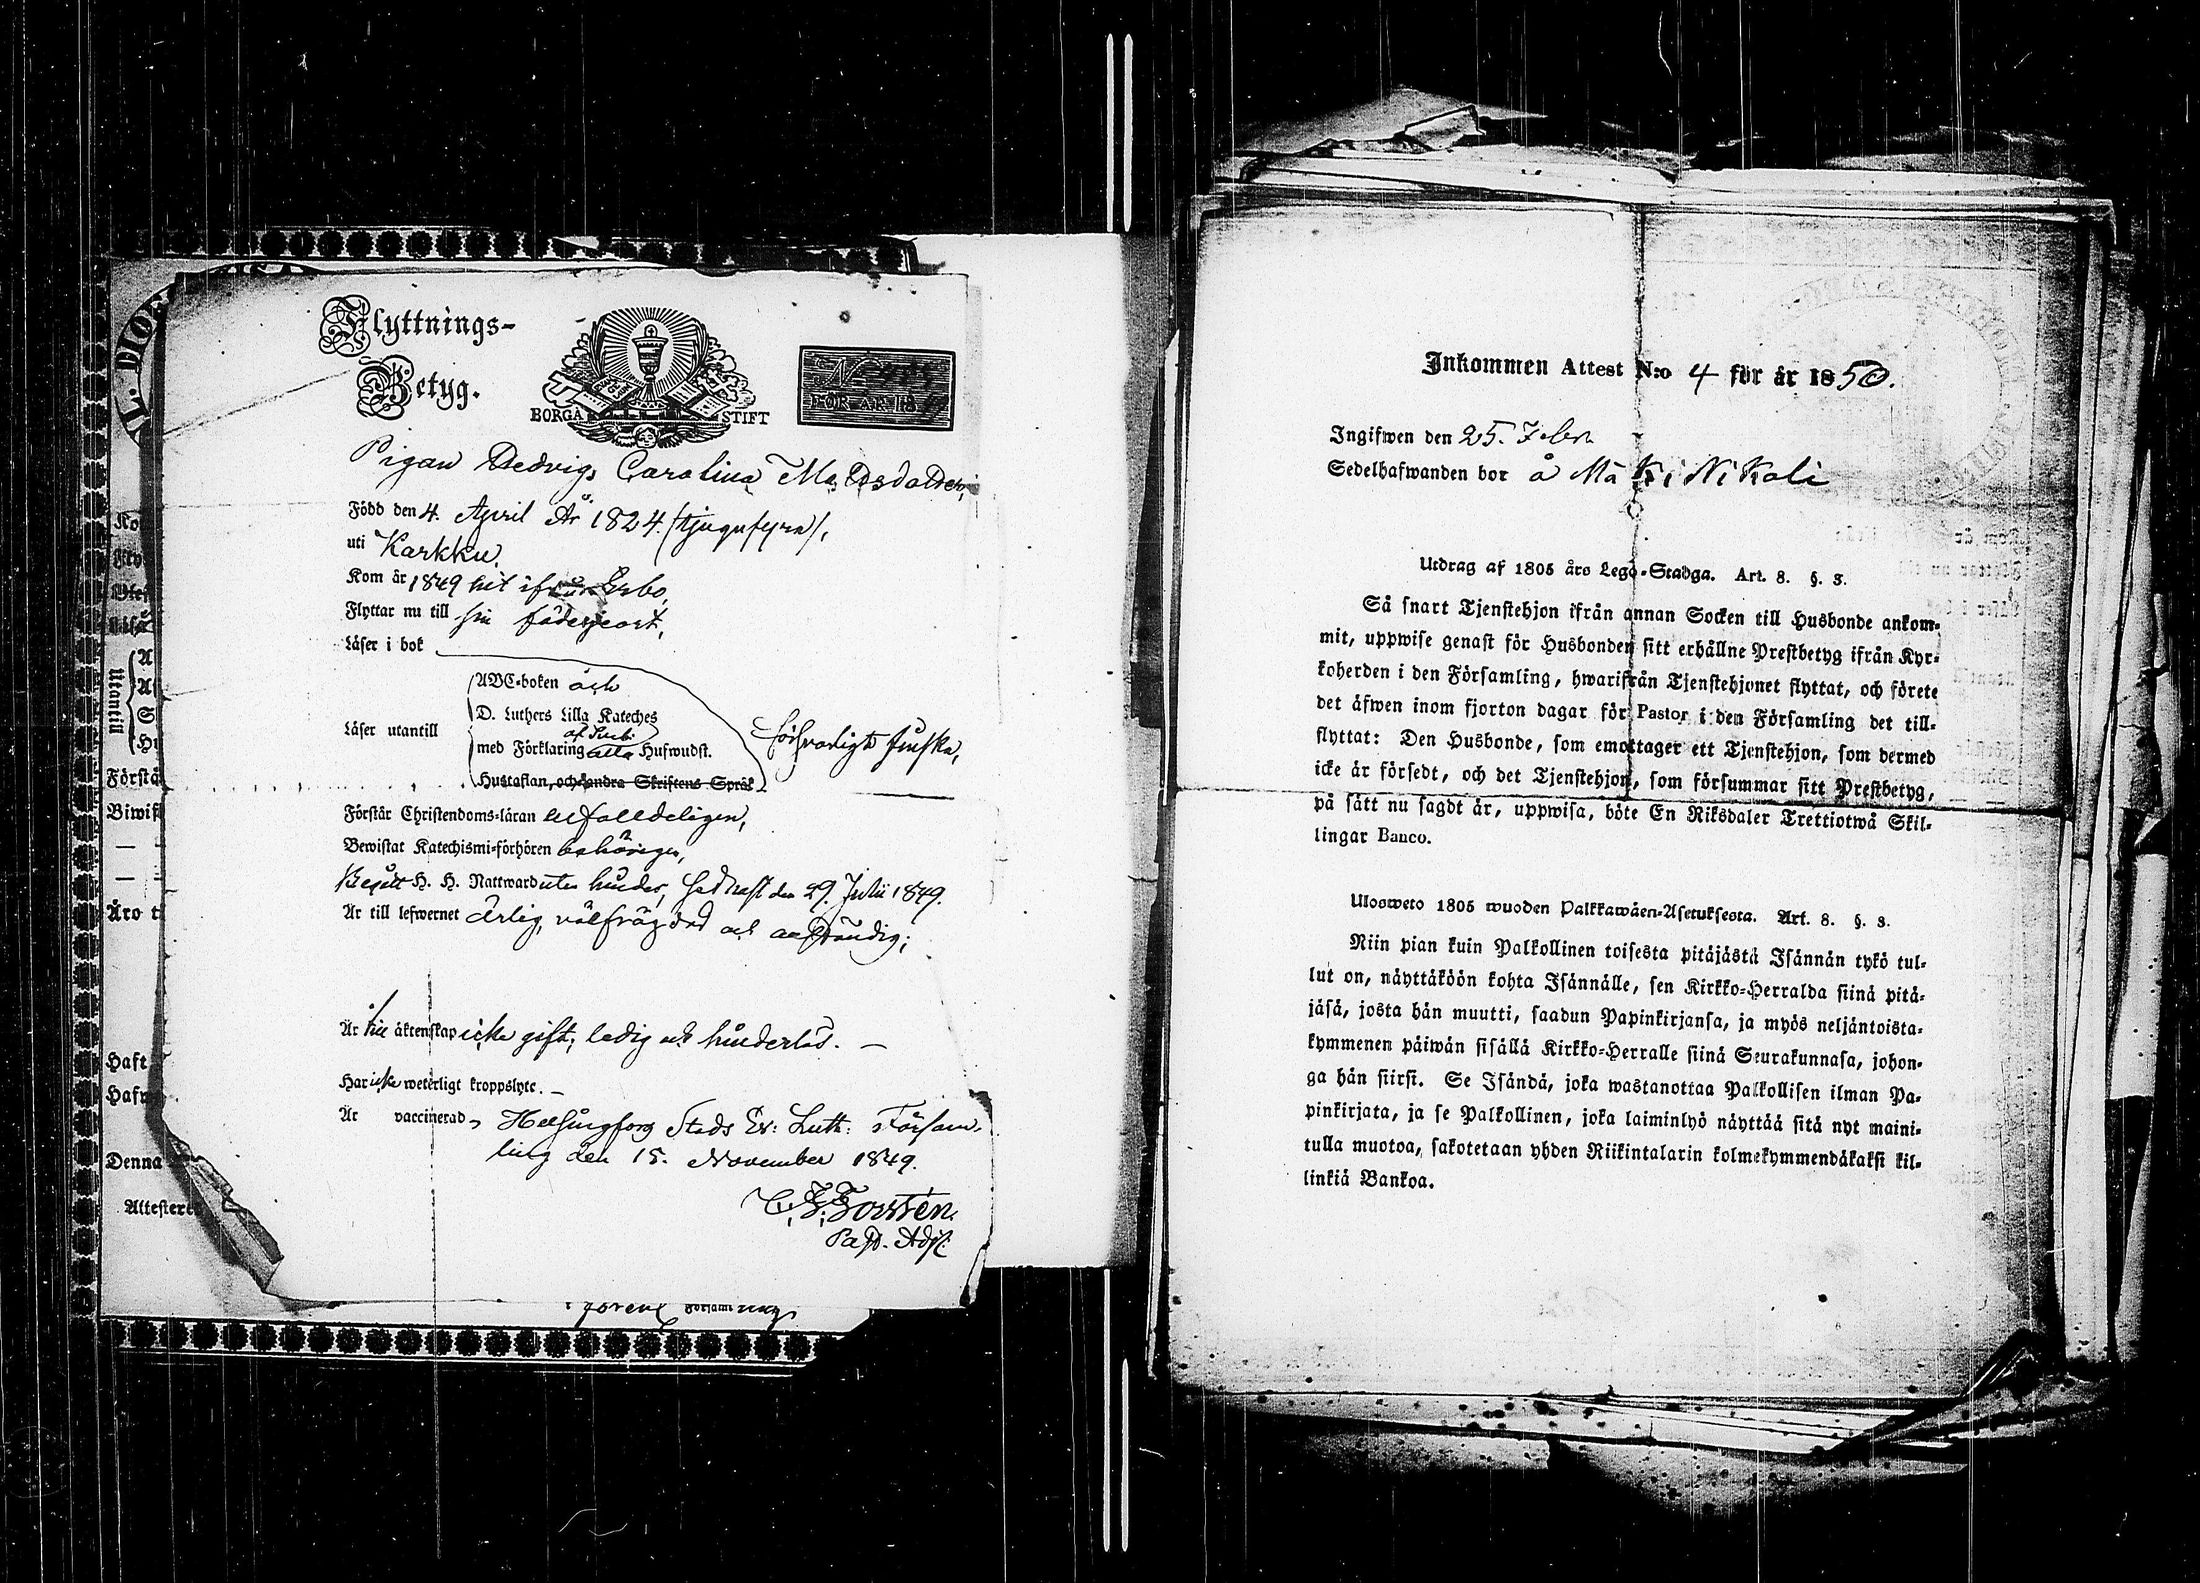 Flyttnings-
Betyg.
BORGÅ STIFT
N:o
FÖR ÅR 18
Pigan Hedvig Carolina Matsdotter,
Född den 4. April År 1824. /tjugufyra/,
uti Karkku.
Kom år 1849 hit ifrån Esbo,
Flyttar nu till sin födelseort,
Läser i bok
ABC-boken och
D. Luthers Lilla Kateches
Läser utantill
med Förklaring alla Hufwudst.
försvarligt finska,
Hustaflan, och andra Skriftens Språk
Förstår Christendoms-läran
Bewistat Katechismi-förhören behörigen,
Begått H. H. Nattward utan hinder, sednast den 29. Julii 1849.
Är till lefwernet ärlig, välfrägdad och anständig;
Är till äktenskap icke gift, ledig och hinderlös. —
Har icke weterligt kroppslyte. —
Är vaccinerad, Helsingfors Stads Ev: Luth: Församling
den 15. November 1849.
C. F. Forstén.
Past. Adj.
Kom
Utantill
Förstår
Biwist
Äro t
Haft
Denna
Attesteres
Inkommen Attest N:o 4 för år 1850.
Ingifwen den 25. Febr.
Sedelhafwanden bor å Mäki Nikoli
Utdrag af 1805 års Lego-Stadga. Art. 8. §. 3.
Så snart Tjenstehjon ifrån annan Socken till Husbonde ankom-
mit, uppwise genast för Husbonden sitt erhållne Prestbetyg ifrån Kyr-
koherden i den Församling, hwarifrån Tjenstehjonet flyttat, och förete
det äfwen inom fjorton dagar för Pastor i den Församling det till-
flyttat: Den Husbonde, som emottager ett Tjenstehjon, som dermed
icke är försedt, och det Tjenstehjon, som försummar sitt Prestbetyg,
på sätt nu sagdt är, uppwisa, böte En Riksdaler Trettiotwå Skil-
lingar Banco.
Ulosweto 1805 wuoden Palkkawäen-Asetuksesta. Art. 8. §. 3.
Niin pian kuin Palkollinen toisesta pitäjästä Isännän tykö tul-
lut on, näyttäköön kohta Isännälle, sen Kirkko-Herralda siinä pitä-
jäsä, josta hän muutti, saadun Papinkirjansa, ja myös neljäntoista-
kymmenen päiwän sisällä Kirkko-Herralle siinä Seurakunnasa, johon-
ga hän siirsi. Se Isändä, joka wastanottaa Palkollisen ilman Pa-
pinkirjata, ja se Palkollinen, joka laiminlyö näyttää sitä nyt maini-
tulla muotoa, sakotetaan yhden Riikintalarin kolmekymmendäkaksi kil-
linkiä Bankoa.